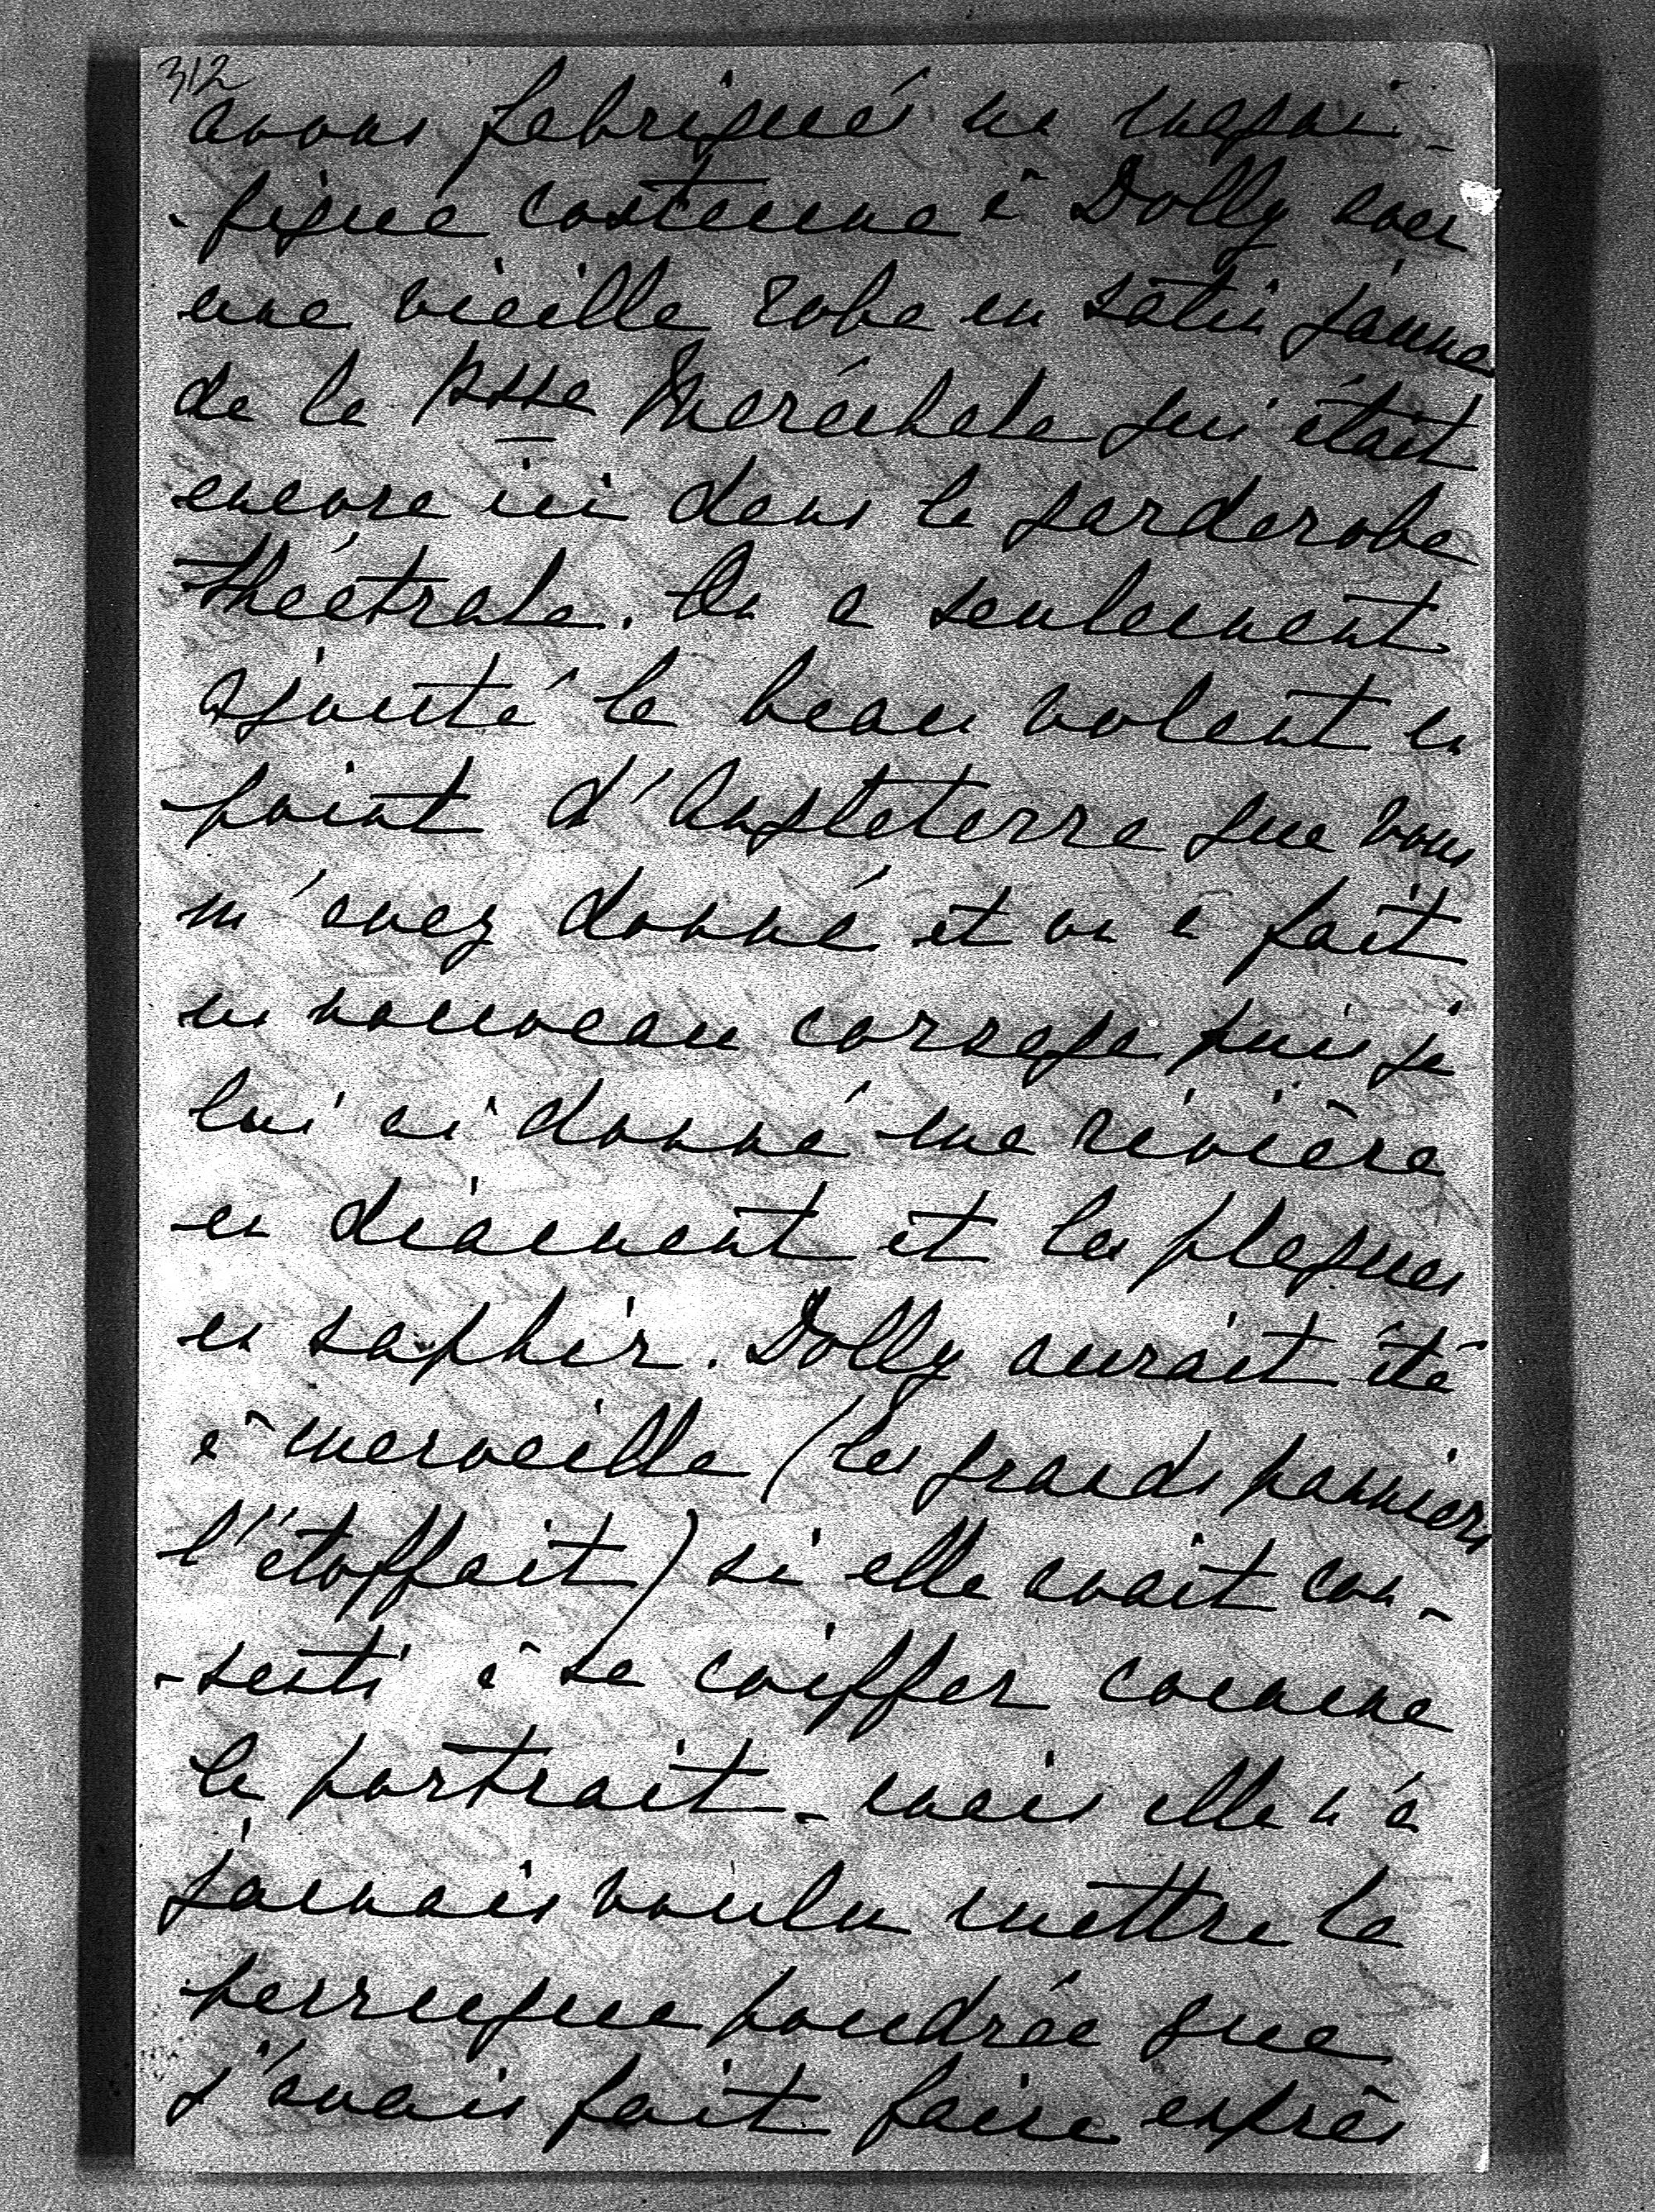 312
avons fabriqué un magni-
-fique costume à Dolly avec
une vieille robe en satin jaune
de la Psse Maréchale qui était
encore ici dans la garderobe
théâtrale. On a seulement
ajouté le beau volant en
point d'Angleterre que vous
m'avez donné et on a fait
un nouveau corsage puis je
lui ai donné une rivière
en diamant et les plaques
en saphir. Dolly aurait été
à merveille (les grands panniers
l'étoffait) si elle avait con-
-senti à se coiffer comme
le portrait - mais elle n'a
jamais voulu mettre la
perruque poudrée que
j'avais fait faire exprès